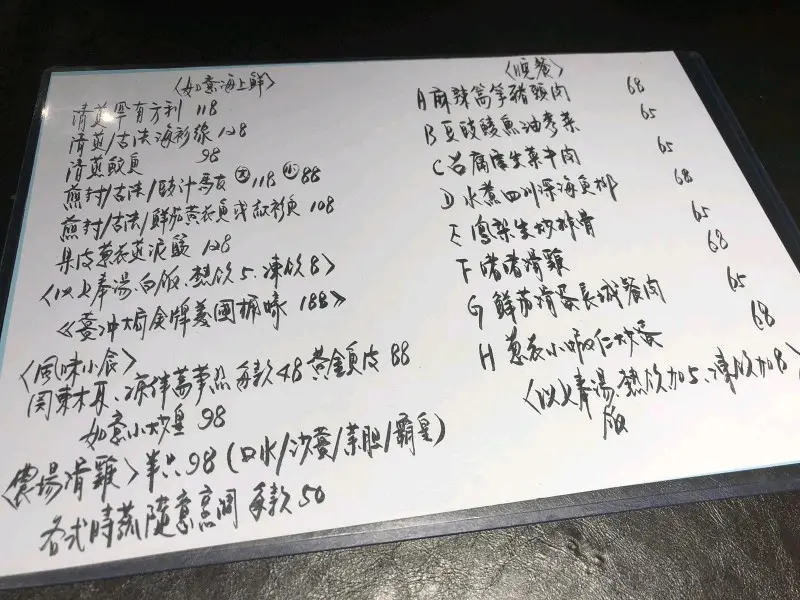 〈如意海上鮮〉
清蒸罕有方利 118
清蒸/古法海衫線 128
清蒸鮫魚 98
煎封/古法/豉汁馬友 大118 小88
煎封/古法/鮮茄黃衣魚或紅衫魚 108
果皮蔥花蒸泥鯭 128
〈以上奉湯、白飯、熱飲5、凍飲8〉
《薑沖焗金牌美國桶蠔 188》
〈風味小食〉
關東木耳、涼伴萵筍 每款48 黃金魚皮 88
如意小炒皇 98
〈農場滑雞〉半只98 (口水/沙薑/菜胆/霸皇)
各式時蔬隨意烹調 每款50
〈晚餐〉
A 麻辣萵筍豬頸肉 68
B 豆豉鯪魚油麥菜 65
C 腐腐生菜牛肉 65
D 水煮四川深海魚柳 68
E 鳳梨生炒排骨 65
F 啫啫滑雞 68
G 鮮茄滑蛋長城餐肉 65
H 蔥花小蝦仁炒蛋 68
〈以上奉湯、熱飲加5、凍飲加8〉
飯